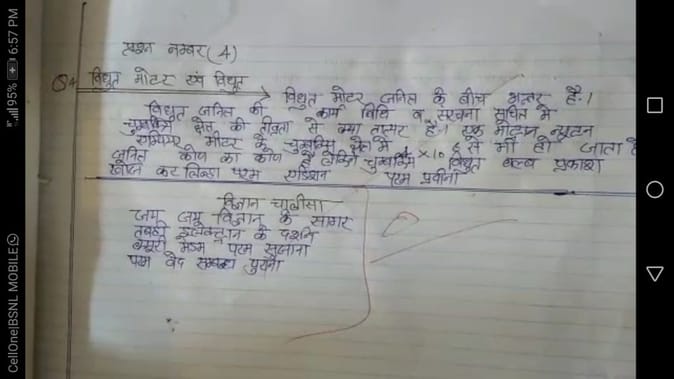 प्रश्न नम्बर (4)
विधुत मोटर एवं विधुत
विधुत मोटर जनित के बीच अन्तर है।
विधुत जनित की कार्य विधि व संरचना सचित मे
चुम्बकिय क्षेत्र की तीव्रता से क्या तात्पर है। एक मीटर न्यूटन
एम्पियर मीटर के चुम्बकिय क्षेत्र मे × 10 से भी हो जाता है
जनित कोण का कोण है चुम्बकिय विधुत बल्ब प्रकाश
खोज कर परम एडिशन परम प्रवीना
विज्ञान चालीसा
जय जय विज्ञान के सागर
के दर्शन
मेडम परम सुजाना
परम वेद सम्बन्ध पुराना
6:57 PM
95%
CellOne|BSNL MOBILE